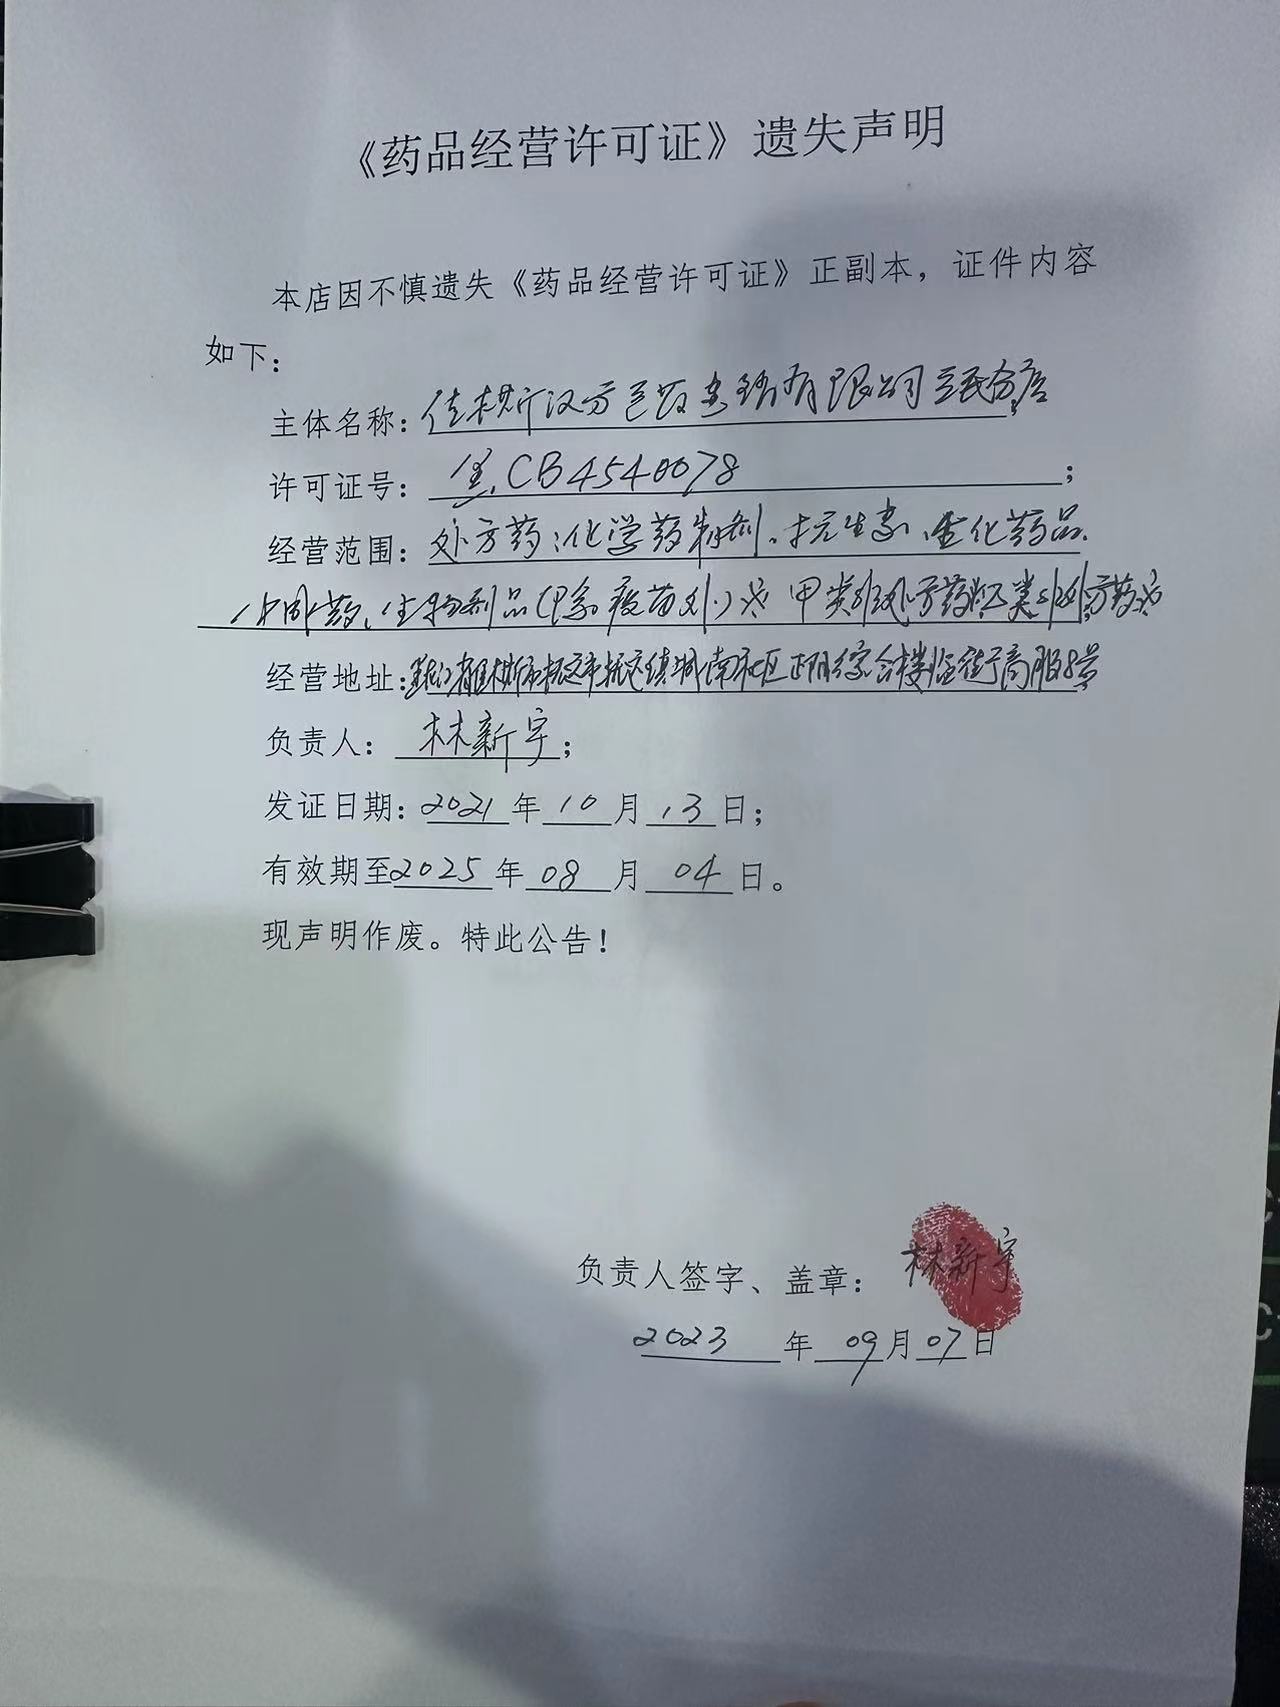 《药品经营许可证》遗失声明
本店因不慎遗失《药品经营许可证》正副本，证件内容
如下：
主体名称：佳木斯汉方 有限公司 分店；
许可证号：黑CB4540078；
经营范围：处方药：化学药制剂、抗生素、生化药品、
中成药、生物制品(除疫苗外)；甲类非处方药；乙类非处方药；
经营地址：黑龙江省佳木斯市抚远市抚远镇城南社区 综合楼临街商服8号；
负责人：林新宇；
发证日期：2021年10月13日；
有效期至2025年08月04日。
现声明作废。特此公告！
负责人签字、盖章：林新宇
2023年09月07日